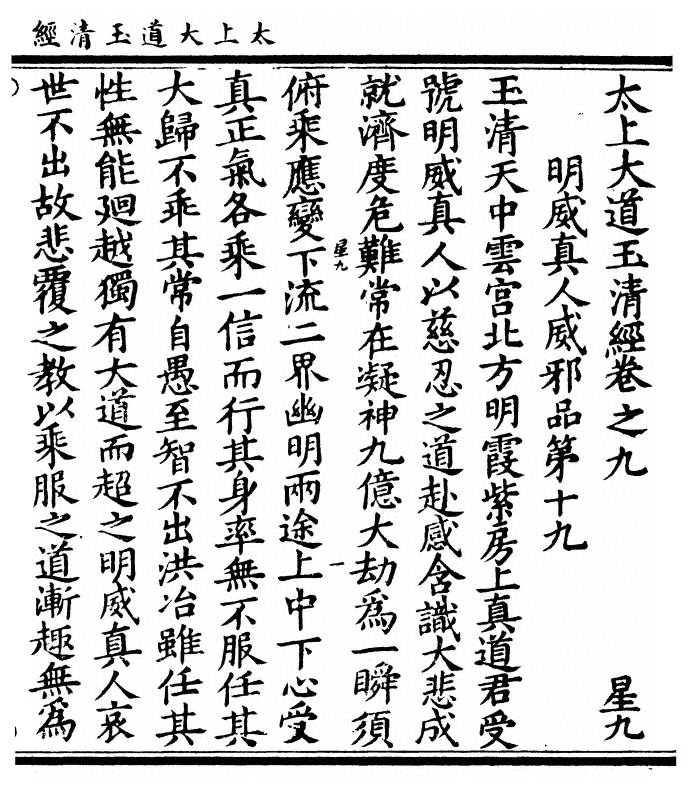 太上大道玉清經
太上大道玉清經卷之九 星九
明威真人威邪品第十九
玉清天中雲宮北方明霞紫房上真道君受
號明威真人以慈忍之道赴感含識大悲成
就濟度危難常在凝神九億大劫爲一瞬須
星九 一
俯乘應變下流二界幽明兩途上中下心受
真正氣各乘一信而行其身率無不服任其
大歸不乖其常自愚至智不出洪冶雖任其
性無能廻越獨有大道而超之明威真人哀
世不出故悲覆之教以乘服之道漸趣無爲